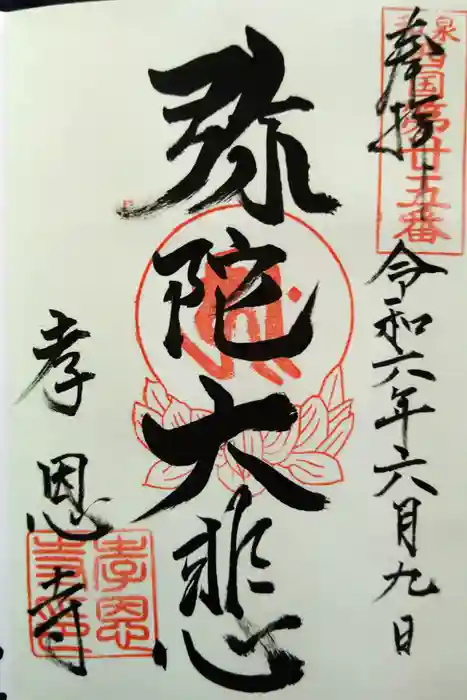 奉拝
和泉
西国第廿五番
令和六年六月九日
弥陀大悲
孝恩寺
孝恩